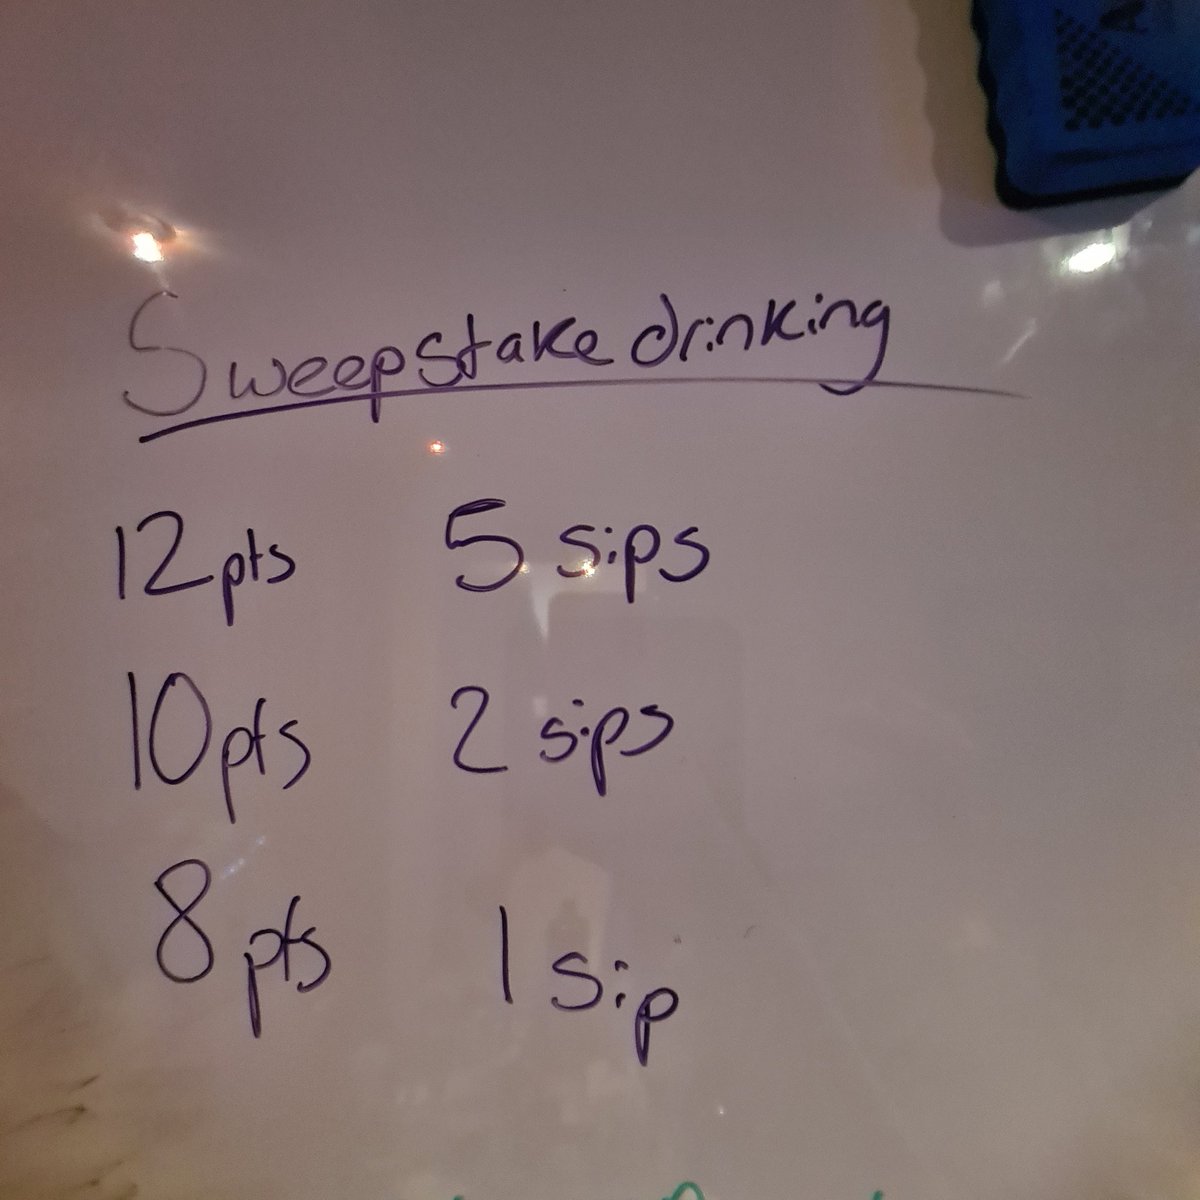 Sweepstake drinking
12pts 5 sips
10pts 2 sips
8pts 1 sip